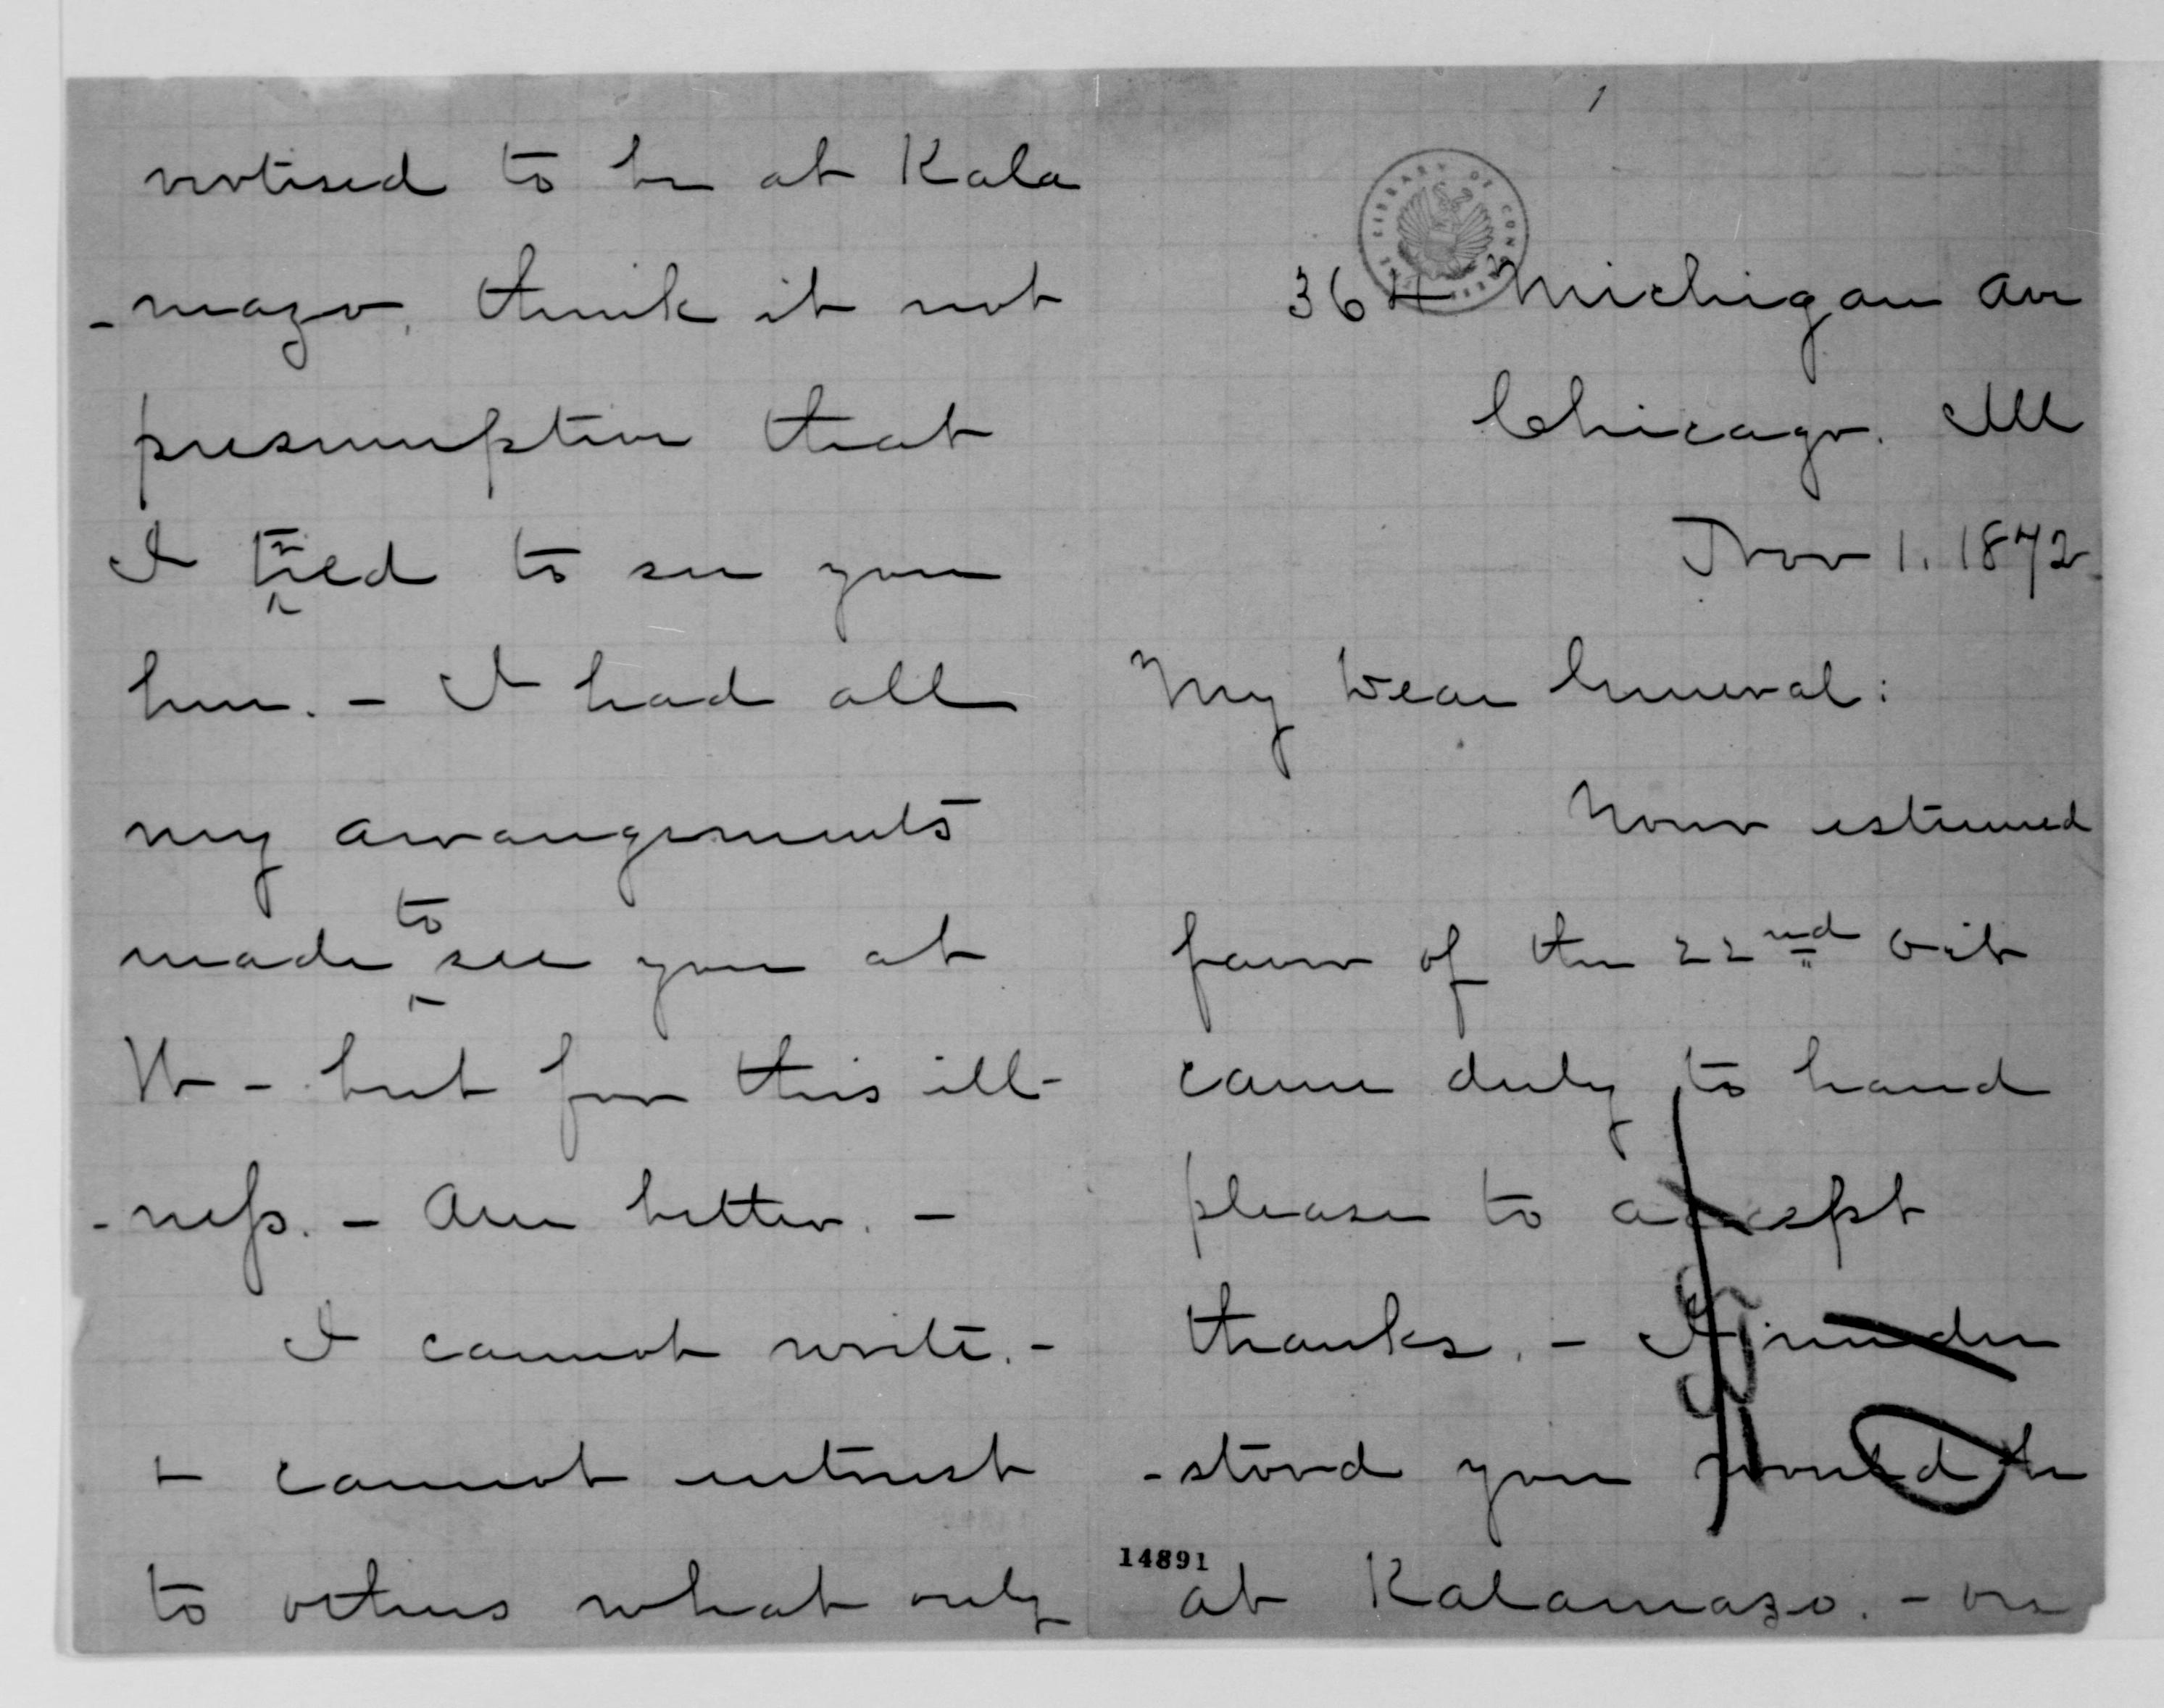 1
THE LIBRARY OF CONGRESS
364 Michigan Av
Chicago. Ill
Nov 1. 1872
My Dear General:
Your esteemed
favor of the 22nd Oct
came duly to hand
please to accept
thanks. - I under
-stood you would be
at Kalamazo. - on
14891
vertised to be at Kala
-mazo, think it not
presumption that
I tried to see you
here. - I had all
my arrangements
made to see you at
W - but for this ill-
-ness. - Am better. -
I cannot write. -
+ cannot entrust
to others what only